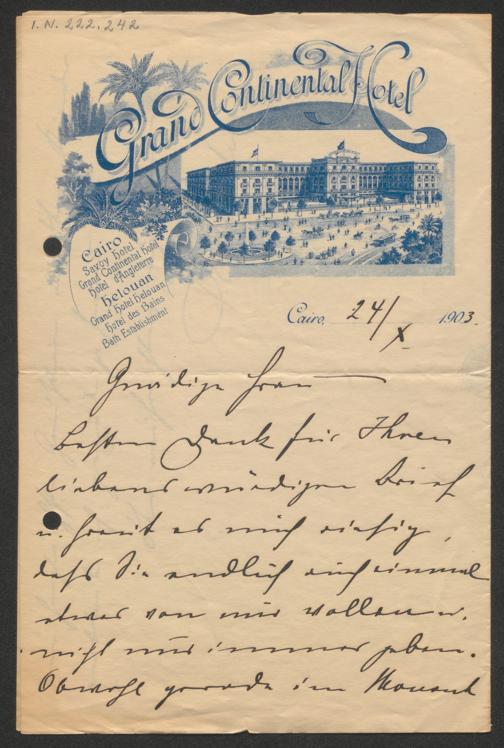 I. N. 222.242
Grand Continental Hotel
Cairo
Savoy Hotel
Grand Continental Hotel
Hotel d'Angleterre
Helouan
Grand Hotel Helouan
Hotel des Bains
Bath Establishment
Cairo, 24/X 1903.
Gnädige Frau
Besten Dank für Ihren
liebenswürdigen Brief
u. freut es mich riesig,
daß Sie endlich auch einmal
etwas von mir wollen u.
nicht nur immer geben.
Obwohl gerade im Moment